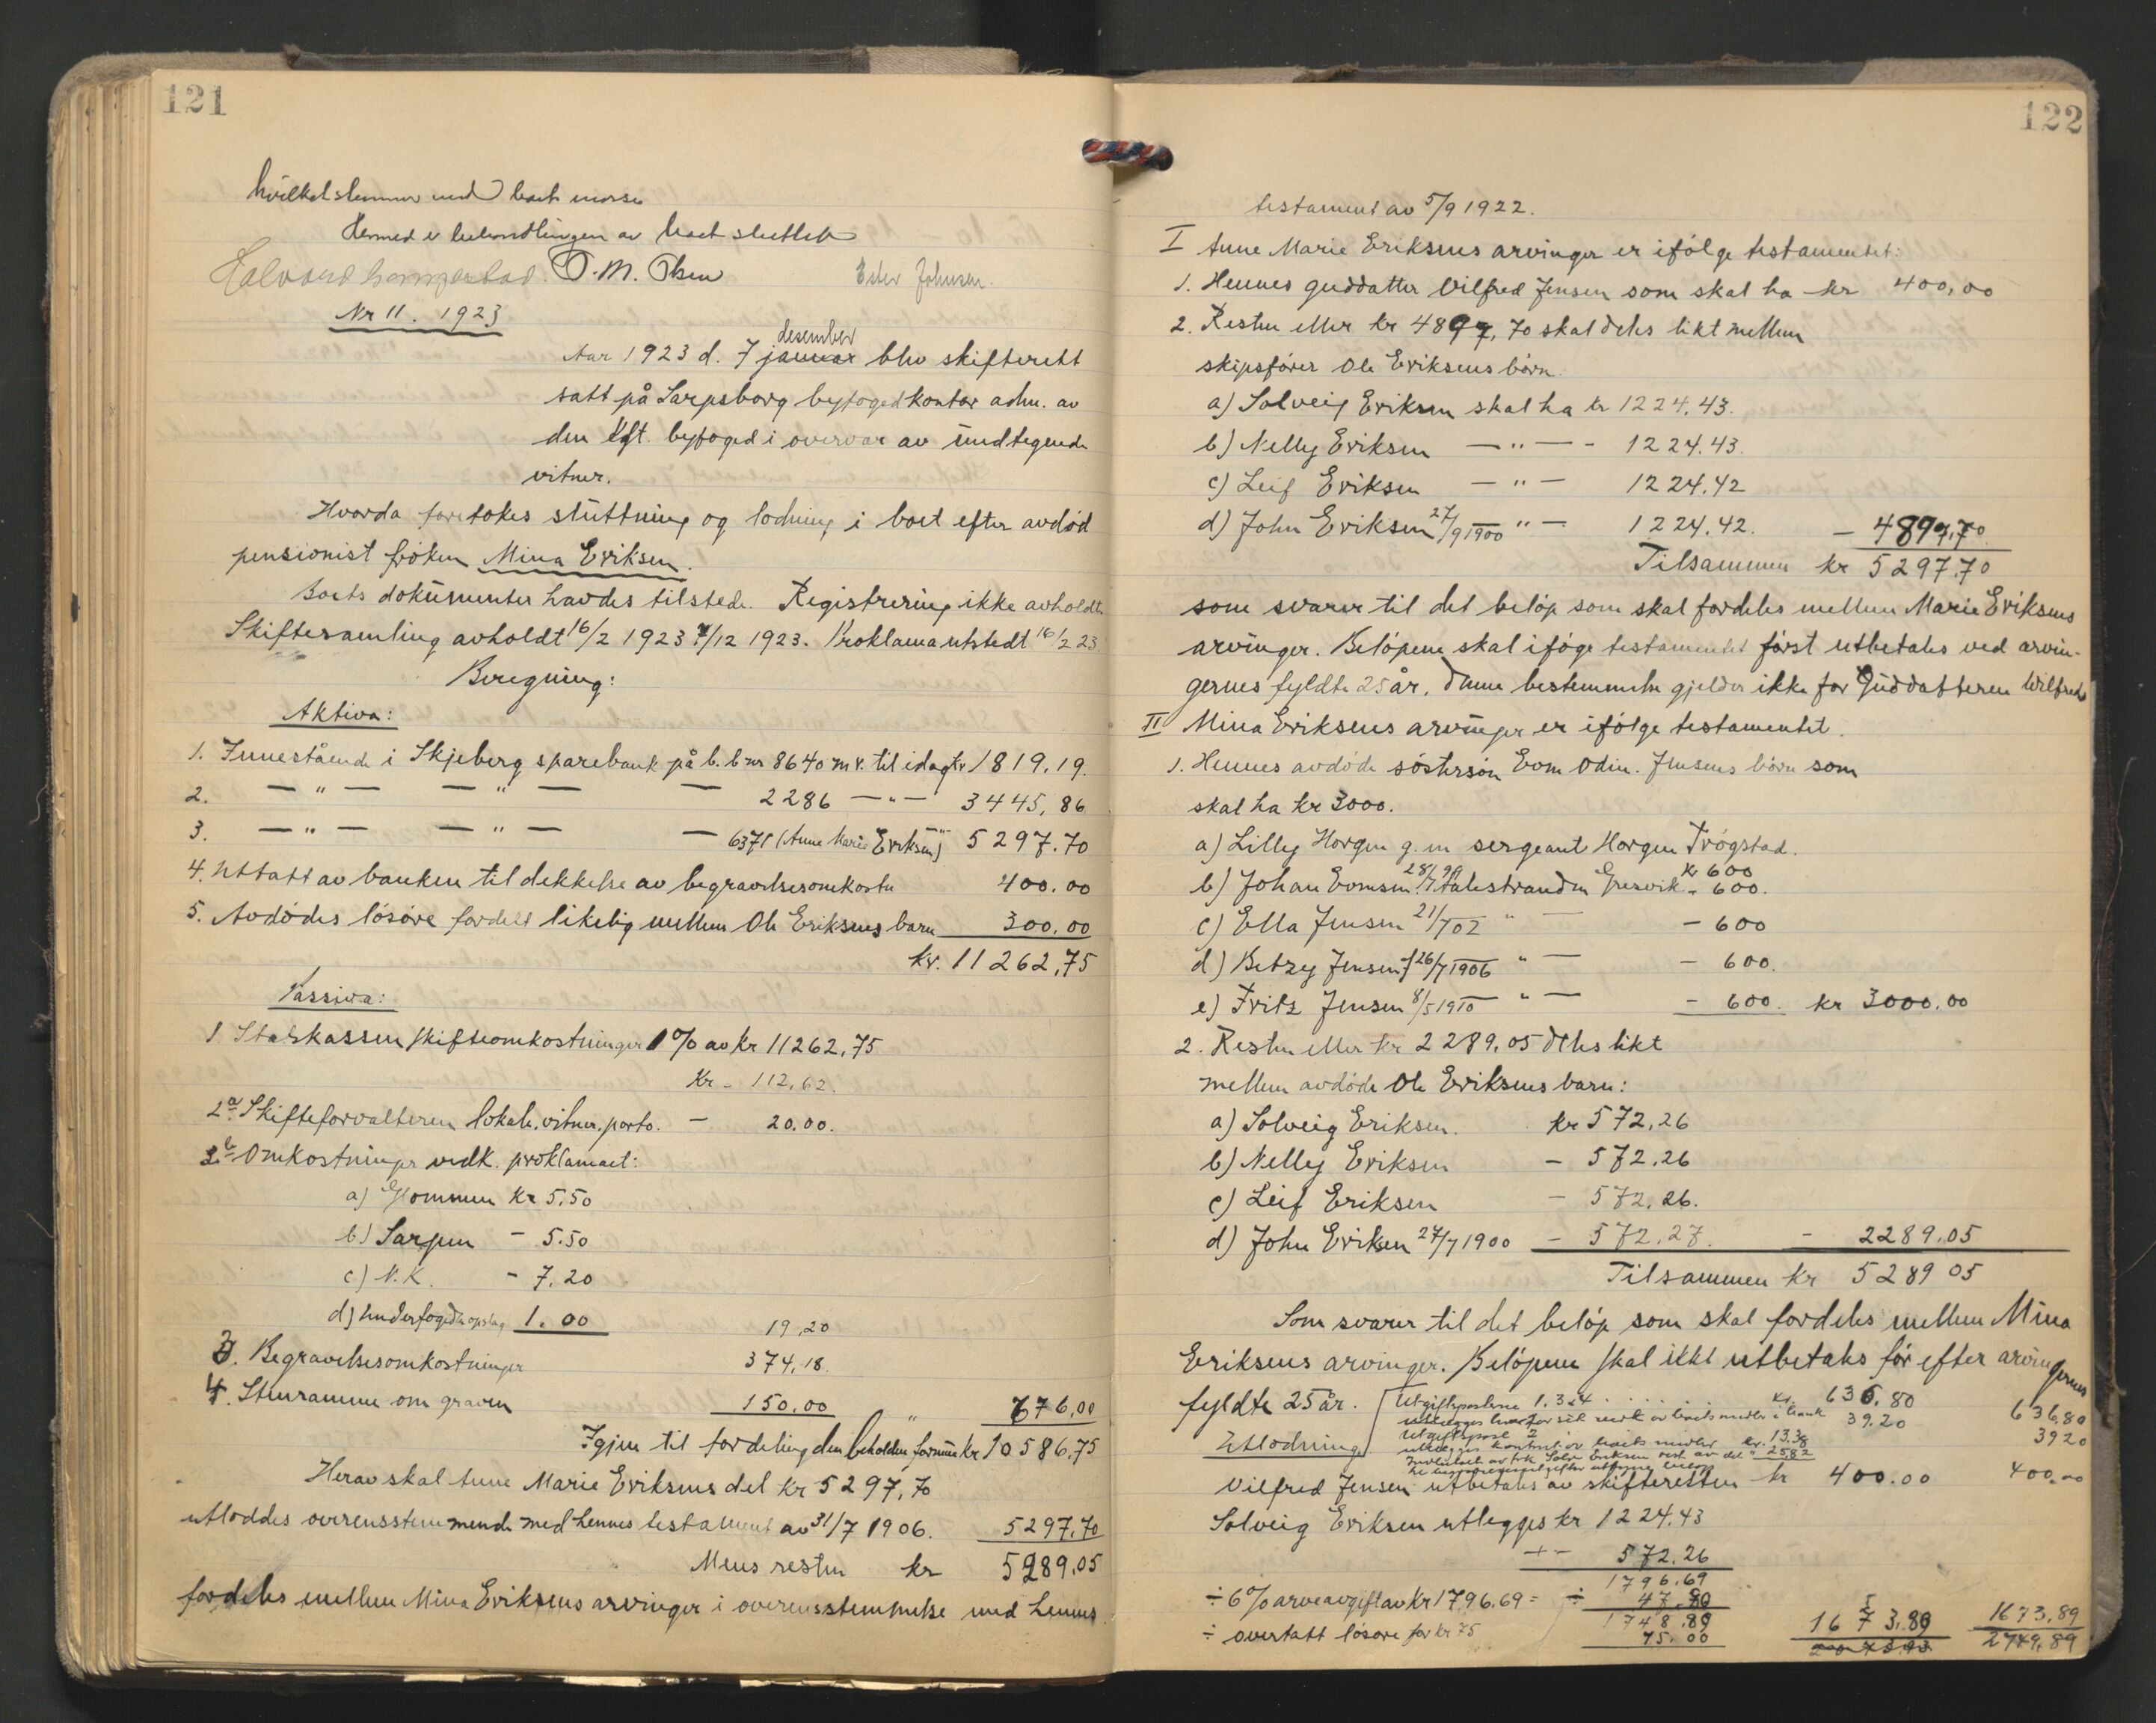 121
hvilket stemmer med boets masse
Hermed er behandlingen av boet sluttet
Halvard T. M. Olsen Ester Johnsen.
Nr 11. 1923
Aar 1923 d. 7 januar desember blev skifterett
satt på Sarpsborg byfogedkontor adm. av
den kst. byfoged i overvær av undtegnede
vitner.
Hvorda foretokes sluttning og lodning i boet efter avdød
pensionist frøken Mina Eriksen.
Boets dokumenter havdes tilstede. Registrering ikke avholdt.
Skiftesamling avholdt 16/2 1923 7/12 1923. Proklama utstedt 16/2 23
Beregning:
Aktiva:
1. Innestående i Skjeberg sparebank på b. b nr 8640 m r. til idag kr 1819,19.
2. — " — — " — — 2286 — " — 3445,86
3. — " — — " — — 6371 (Anne Marie Eriksen) 5297.70
4. Uttatt av banken til dekkelse av begravelsesomkostn 400.00
5. Avdødes løsøre fordelt likelig mellem Ole Eriksens barn 300.00
kr. 11262,75
Passiva:
1. Statskassen skifteomkostninger 1% av kr 11262,75
Kr - 112,62.
2a Skifteforvalteren lokale, vitner, porto. - 20.00.
2b Omkostninger vedk. proklamaet:
a) Glommen kr 5.50
b) Sarpen - 5.50
c) N. K. - 7.20
d) Underfogden opslag 1.00 19,20
3. Begravelsesomkostninger 374,18.
4. Stenramme om graven 150.00 " 676,00
Igjen til fordeling den beholdne formue kr 10586,75
Herav skal Anne Marie Eriksens del kr 5297,70
utloddes overensstemmende med hennes testament av 31/7 1906. 5297,70
Mens resten kr 5289,05
fordeles mellem Mina Eriksens arvinger i overensstemmelse med hennes
122
testament av 5/9 1922.
I Anne Marie Eriksens arvinger er ifølge testamentet:
1. Hennes guddatter Vilfred Jensen som skal ha kr 400,00
2. Resten eller kr 4897,70 skal deles likt mellem
skipsfører Ole Eriksens børn.
a) Solveig Eriksen skal ha kr 1224,43.
b) Nelly Eriksen — " — - 1224.43.
c) Leif Eriksen — " — 1224,42
d) John Eriksen 27/9 1900 " — 1224,42. - 4897,70
Tilsammen kr 5297,70
som svarer til det beløp som skal fordeles mellem Marie Eriksens
arvinger. Beløpene skal iføge testamentet først utbetales ved arvin-
gernes fyldte 25 år. Denne bestemmelse gjelder ikke for Guddatteren Wilfred
II Mina Eriksens arvinger er ifølge testamentet.
1. Hennes avdøde søstersøn Evom Odin. Jensens børn som
skal ha kr 3000.
a) Lilly Horgen g. m sergeant Horgen Trøgstad. kr 600
b) Johan Evomsen 28/7 99 Talestranden Gresvik - 600.
c) Ella Jensen 21/7 02 " — - 600
d) Betzy Jensen f 26/7 1906 " — - 600.
e) Fritz Jensen 8/5 1910 " — - 600. kr 3000.00
2. Resten eller kr 2289,05 deles likt
mellem avdøde Ole Eriksens barn:
a) Solveig Eriksen. kr 572,26
b) Nelly Eriksen - 572,26
c) Leif Eriksen - 572,26.
d) John Eriksen 27/7 1900 - 572,27. - 2289.05
Tilsammen kr 5289 05
Som svarer til det beløp som skal fordeles mellem Mina
Eriksens arvinger. Beløpene skal ikke utbetales før efter arvingernes
fyldte 25 år. Utgiftspostene 1. 3 & 4 . . . . kr. 636.80 636,80
utlægges av boets midler i bank 39.20 3920
Utlodning Utgiftspost 2
utlægges kontant av boets midler kr. 13.38
av frk Solv. Eriksen av del " 25.82
Vilfred Jensen utbetales av skifteretten kr 400.00 400,00
Solveig Eriksen utlegges kr 1224,43
-"- 572.26
1796,69
÷ 6% arveavgift av kr 1796,69 = ÷ 47.80
1748.89
÷ overtatt løsøre for kr 75 75.00 1673.89 1673,89
2749,89